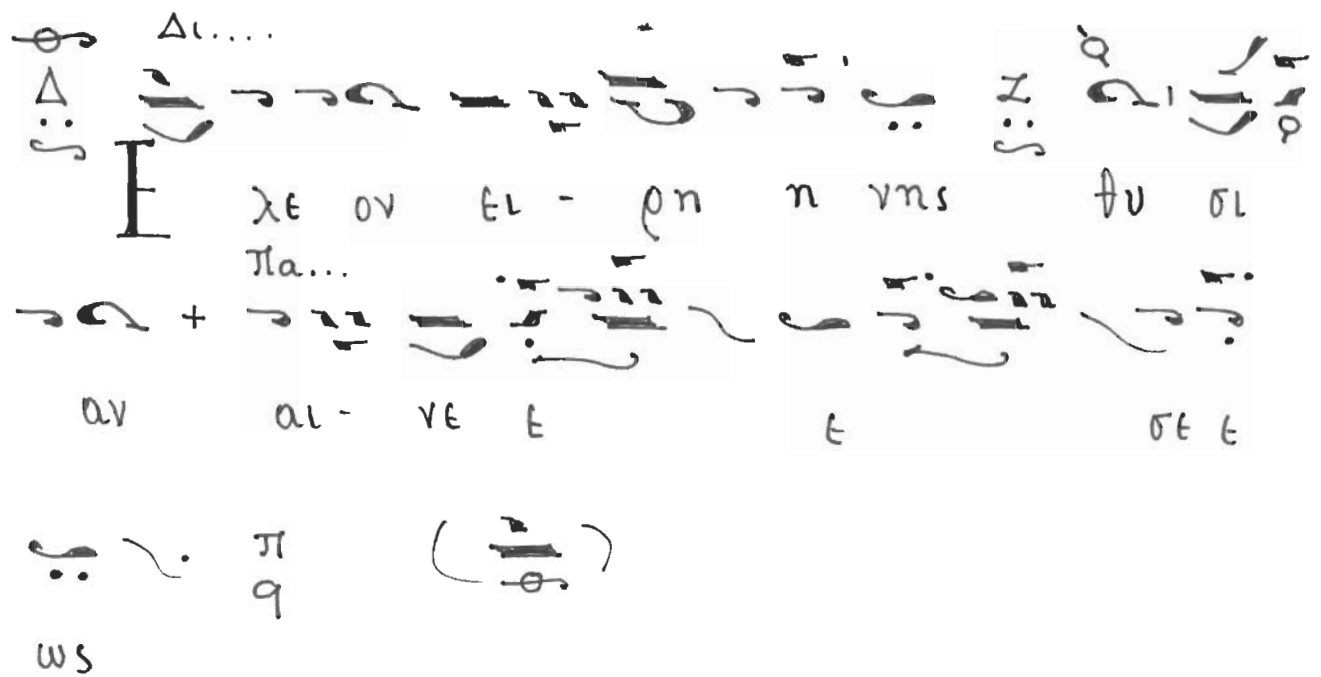 Δι....
Δ Ζ
Ε λε ον ει - ρη η νης θυ σι
Πα...
αν αι - νε ε ε σε ε
π
q
ως